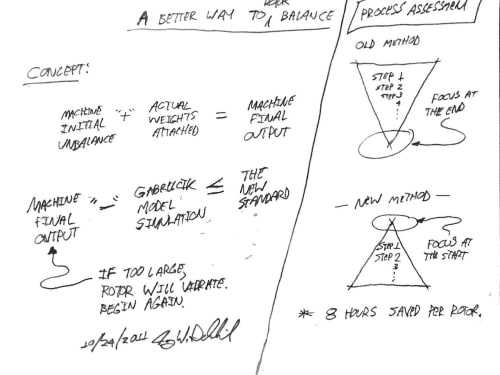 A BETTER WAY TO BALANCE
CONCEPT:
MACHINE INITIAL UNBALANCE "+" ACTUAL WEIGHTS ATTACHED = MACHINE FINAL OUTPUT
MACHINE FINAL OUTPUT "-" MODEL SIMULATION ≤ THE NEW STANDARD
IF TOO LARGE,
ROTOR WILL VIBRATE.
BEGIN AGAIN.
10/24/2011
PROCESS ASSESSMENT
OLD METHOD
STEP 1
STEP 2
STEP 3
4
FOCUS AT
THE END
— NEW METHOD —
STEP 1
STEP 2
3
FOCUS AT
THE START
* 8 HOURS SAVED PER ROTOR.